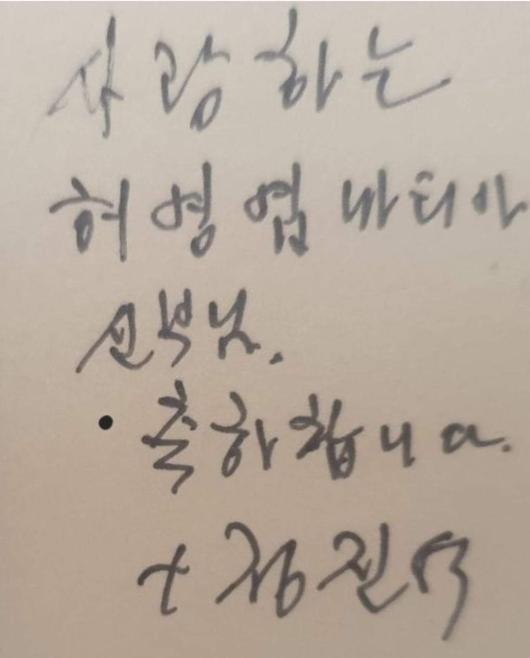 사랑하는
허영엽 마티아
신부님.
· 축하합니다.
+ 정진석